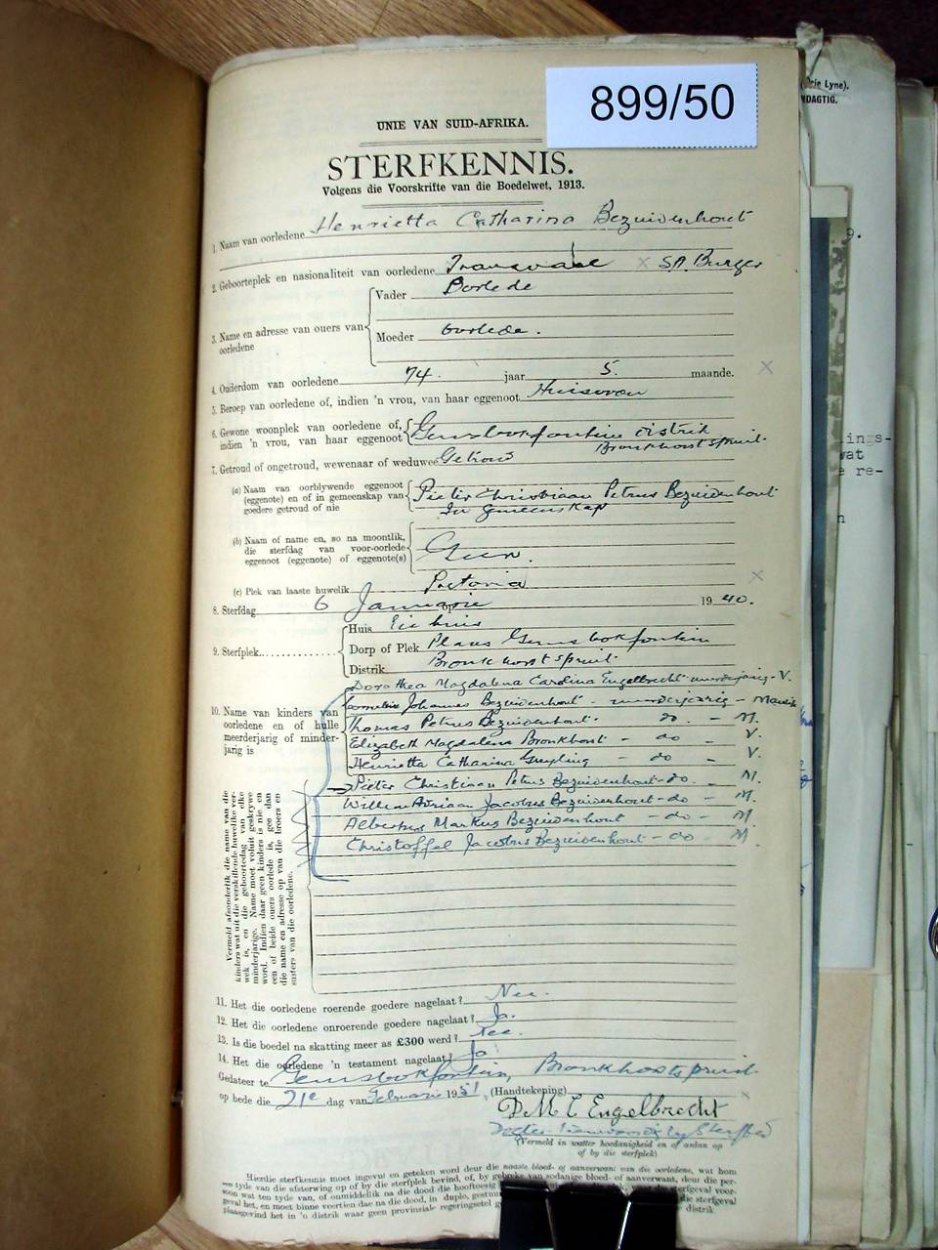 899/50
UNIE VAN SUID-AFRIKA.
STERFKENNIS.
Volgens die Voorskrifte van die Boedelwet, 1913.
1. Naam van oorledene Henrietta Catharina Bezuidenhout
2. Geboorteplek en nasionaliteit van oorledene Transvaal x SA. Burger
3. Name en adresse van ouers van oorledene
Vader Oorlede
Moeder Oorlede.
4. Ouderdom van oorledene 74. jaar 5. maande. x
5. Beroep van oorledene of, indien 'n vrou, van haar eggenoot Huisvrou
6. Gewone woonplek van oorledene of, indien 'n vrou, van haar eggenoot Gemsbokfontein distrik
Bronkhorstspruit.
7. Getroud of ongetroud, wewenaar of weduwee Getroud
(a) Naam van oorblywende eggenoot (eggenote) en of in gemeenskap van goedere getroud of nie
Pieter Christiaan Petrus Bezuidenhout
In Gemeenskap
(b) Naam of name en, so na moontlik, die sterfdag van voor-oorlede eggenoot (eggenote) of eggenote(s) Geen
(c) Plek van laaste huwelik Pretoria x
8. Sterfdag 6 Januarie 1940.
9. Sterfplek
Huis Eie huis
Dorp of Plek Plaas Gemsbokfontein
Distrik Bronkhorstspruit.
10. Name van kinders van oorledene en of hulle meerderjarig of minderjarig is
Dorothea Magdalena Carolina Engelbrecht meerderjarig - V.
Cornelius Johannes Bezuidenhout - meerderjarig - Manlik
Thomas Petrus Bezuidenhout. do. - M.
Elizabeth Magdalena Bronkhorst - do - V.
Henrietta Catharina Greyling - do - V.
Pieter Christiaan Petrus Bezuidenhout - do. M.
Willem Adriaan Jacobus Bezuidenhout - do - M.
Albertus Markus Bezuidenhout - do - M
Christoffel Jacobus Bezuidenhout - do - M
Vermeld afsonderlik die name van die
kinders wat uit die verskillende huwelike verwek
is, en die geboortedag van elke
minderjarige. Name moet voluit geskrywe
word. Indien daar geen kinders is nie en
een of beide ouers oorlede is, gee dan
die name en adresse op van die broers en
susters van die oorledene.
11. Het die oorledene roerende goedere nagelaat? Nee.
12. Het die oorledene onroerende goedere nagelaat? Ja.
13. Is die boedel na skatting meer as £300 werd? Nee.
14. Het die oorledene 'n testament nagelaat? Ja
Gedateer te Gemsbokfontein, Bronkhorstspruit.
op hede die 21e dag van Februarie 1951 (Handtekening)
D.M.C Engelbrecht
Dogter
(Vermeld in watter hoedanigheid en of aldan op
of by die sterfplek)
Hierdie sterfkennis moet ingevul en geteken word deur die naaste bloed- of aanverwant van die oorledene, wat